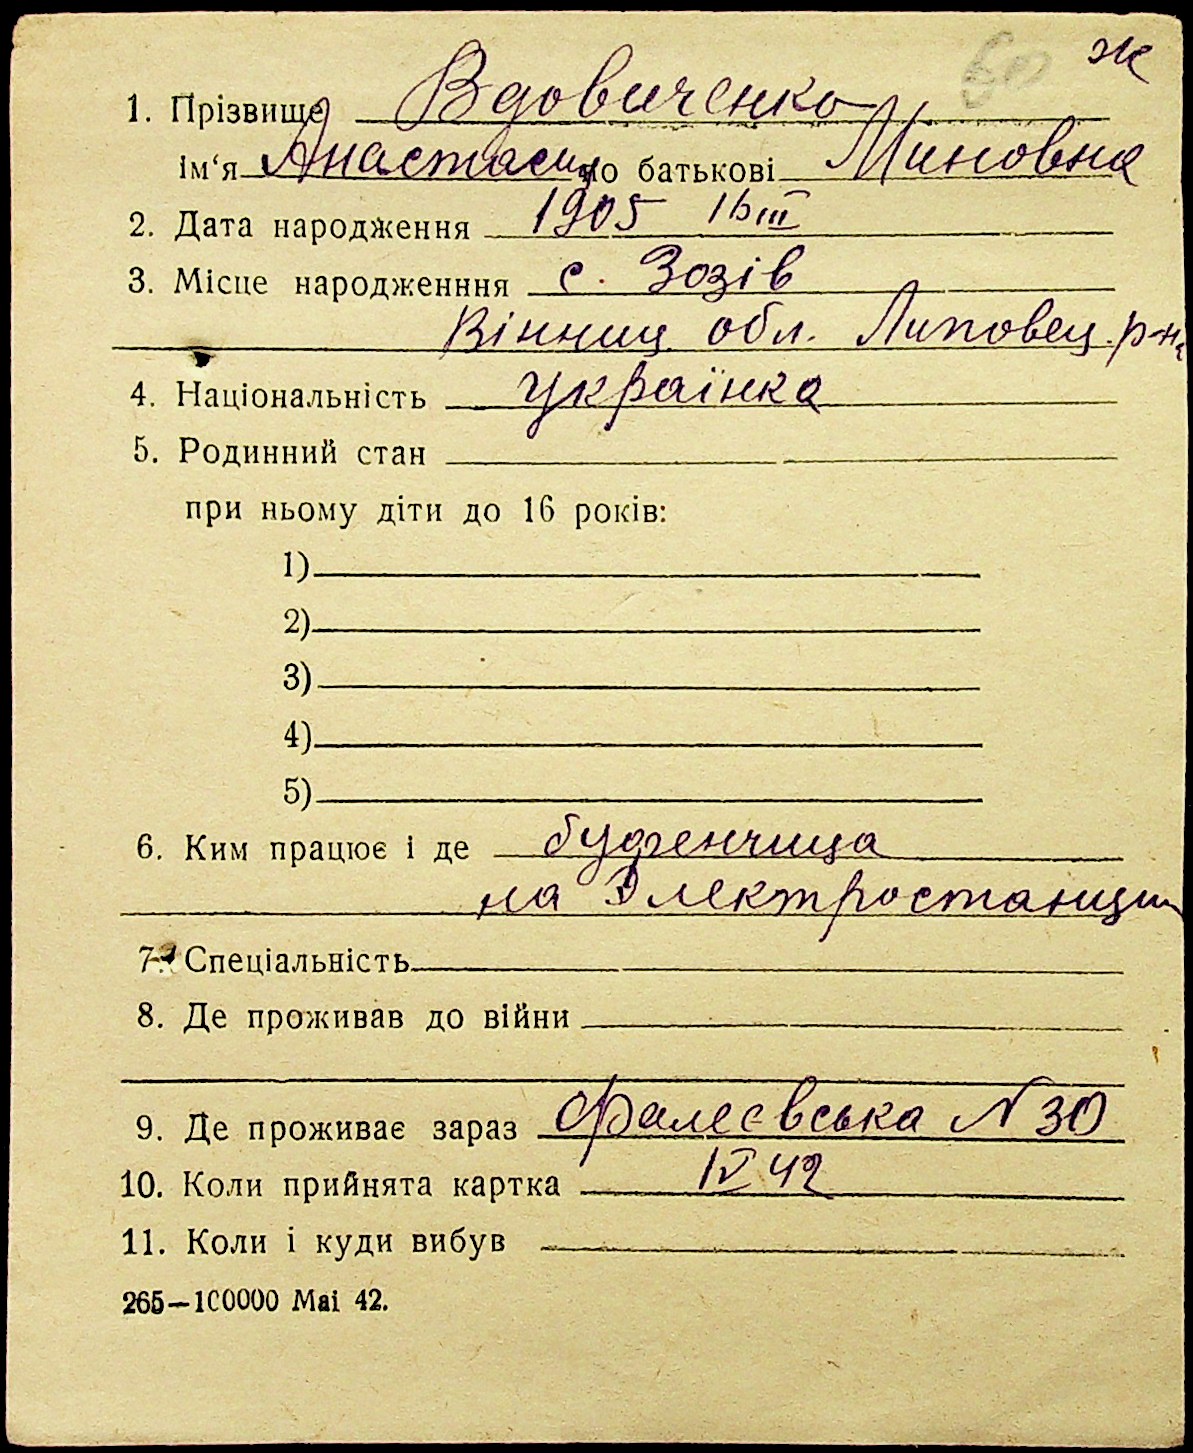 ж
1. Прізвище Вдовиченко
ім‘я Анастасия по батькові Миновна
2. Дата народження 1905 16 III
3. Місце народженння с. Зозів
Вінниц. обл. Липовец. р-н
4. Національність українка
5. Родинний стан
при ньому діти до 16 років:
1)
2)
3)
4)
5)
6. Ким працює і де
на Электростанции
7. Спеціальність
8. Де проживав до війни
9. Де проживає зараз Фалеєвська N 30
10. Коли прийнята картка IV 42
11. Коли і куди вибув
265—100000 Mai 42.